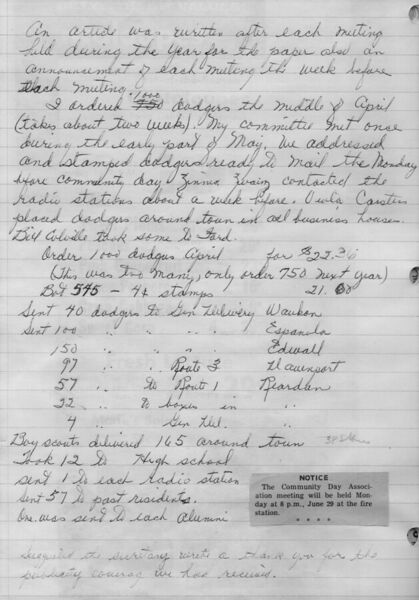 An article was written after each meeting
held during the year for the paper also an
announcement of each meeting the week before
each meeting.
I ordered 1000 dodgers the middle of April
(takes about two weeks). My committee met once
during the early part of May, we addressed
and stamped dodgers ready to mail the Monday
before community day. Zimma contacted the
radio stations about a week before. Carstens
placed dodgers around town in all business houses.
Bill Colville took some to Ford.
Order 1000 dodgers April for $22.36
(This was too many, only order 750 next year)
Bot 545 - 4¢ stamps 21.80
Sent 40 dodgers to Gen Delivery Waukon
Sent 100 " " " " Espanola
150 " " " " Edwall
97 " " Route 3 Davenport
57 " to Route 1 Reardan
22 " to boxes in "
4 " Gen Del. "
Boy scouts delivered 165 around town
Took 12 to High school
sent 1 to each radio station
Sent 57 to past residents.
One was sent to each alumni
NOTICE
The Community Day Associ-
ation meeting will be held Mon-
day at 8 p.m., June 29 at the fire
station.
* * * *
Suggested the secretary write a thank you for the
publicity coverag we has received.